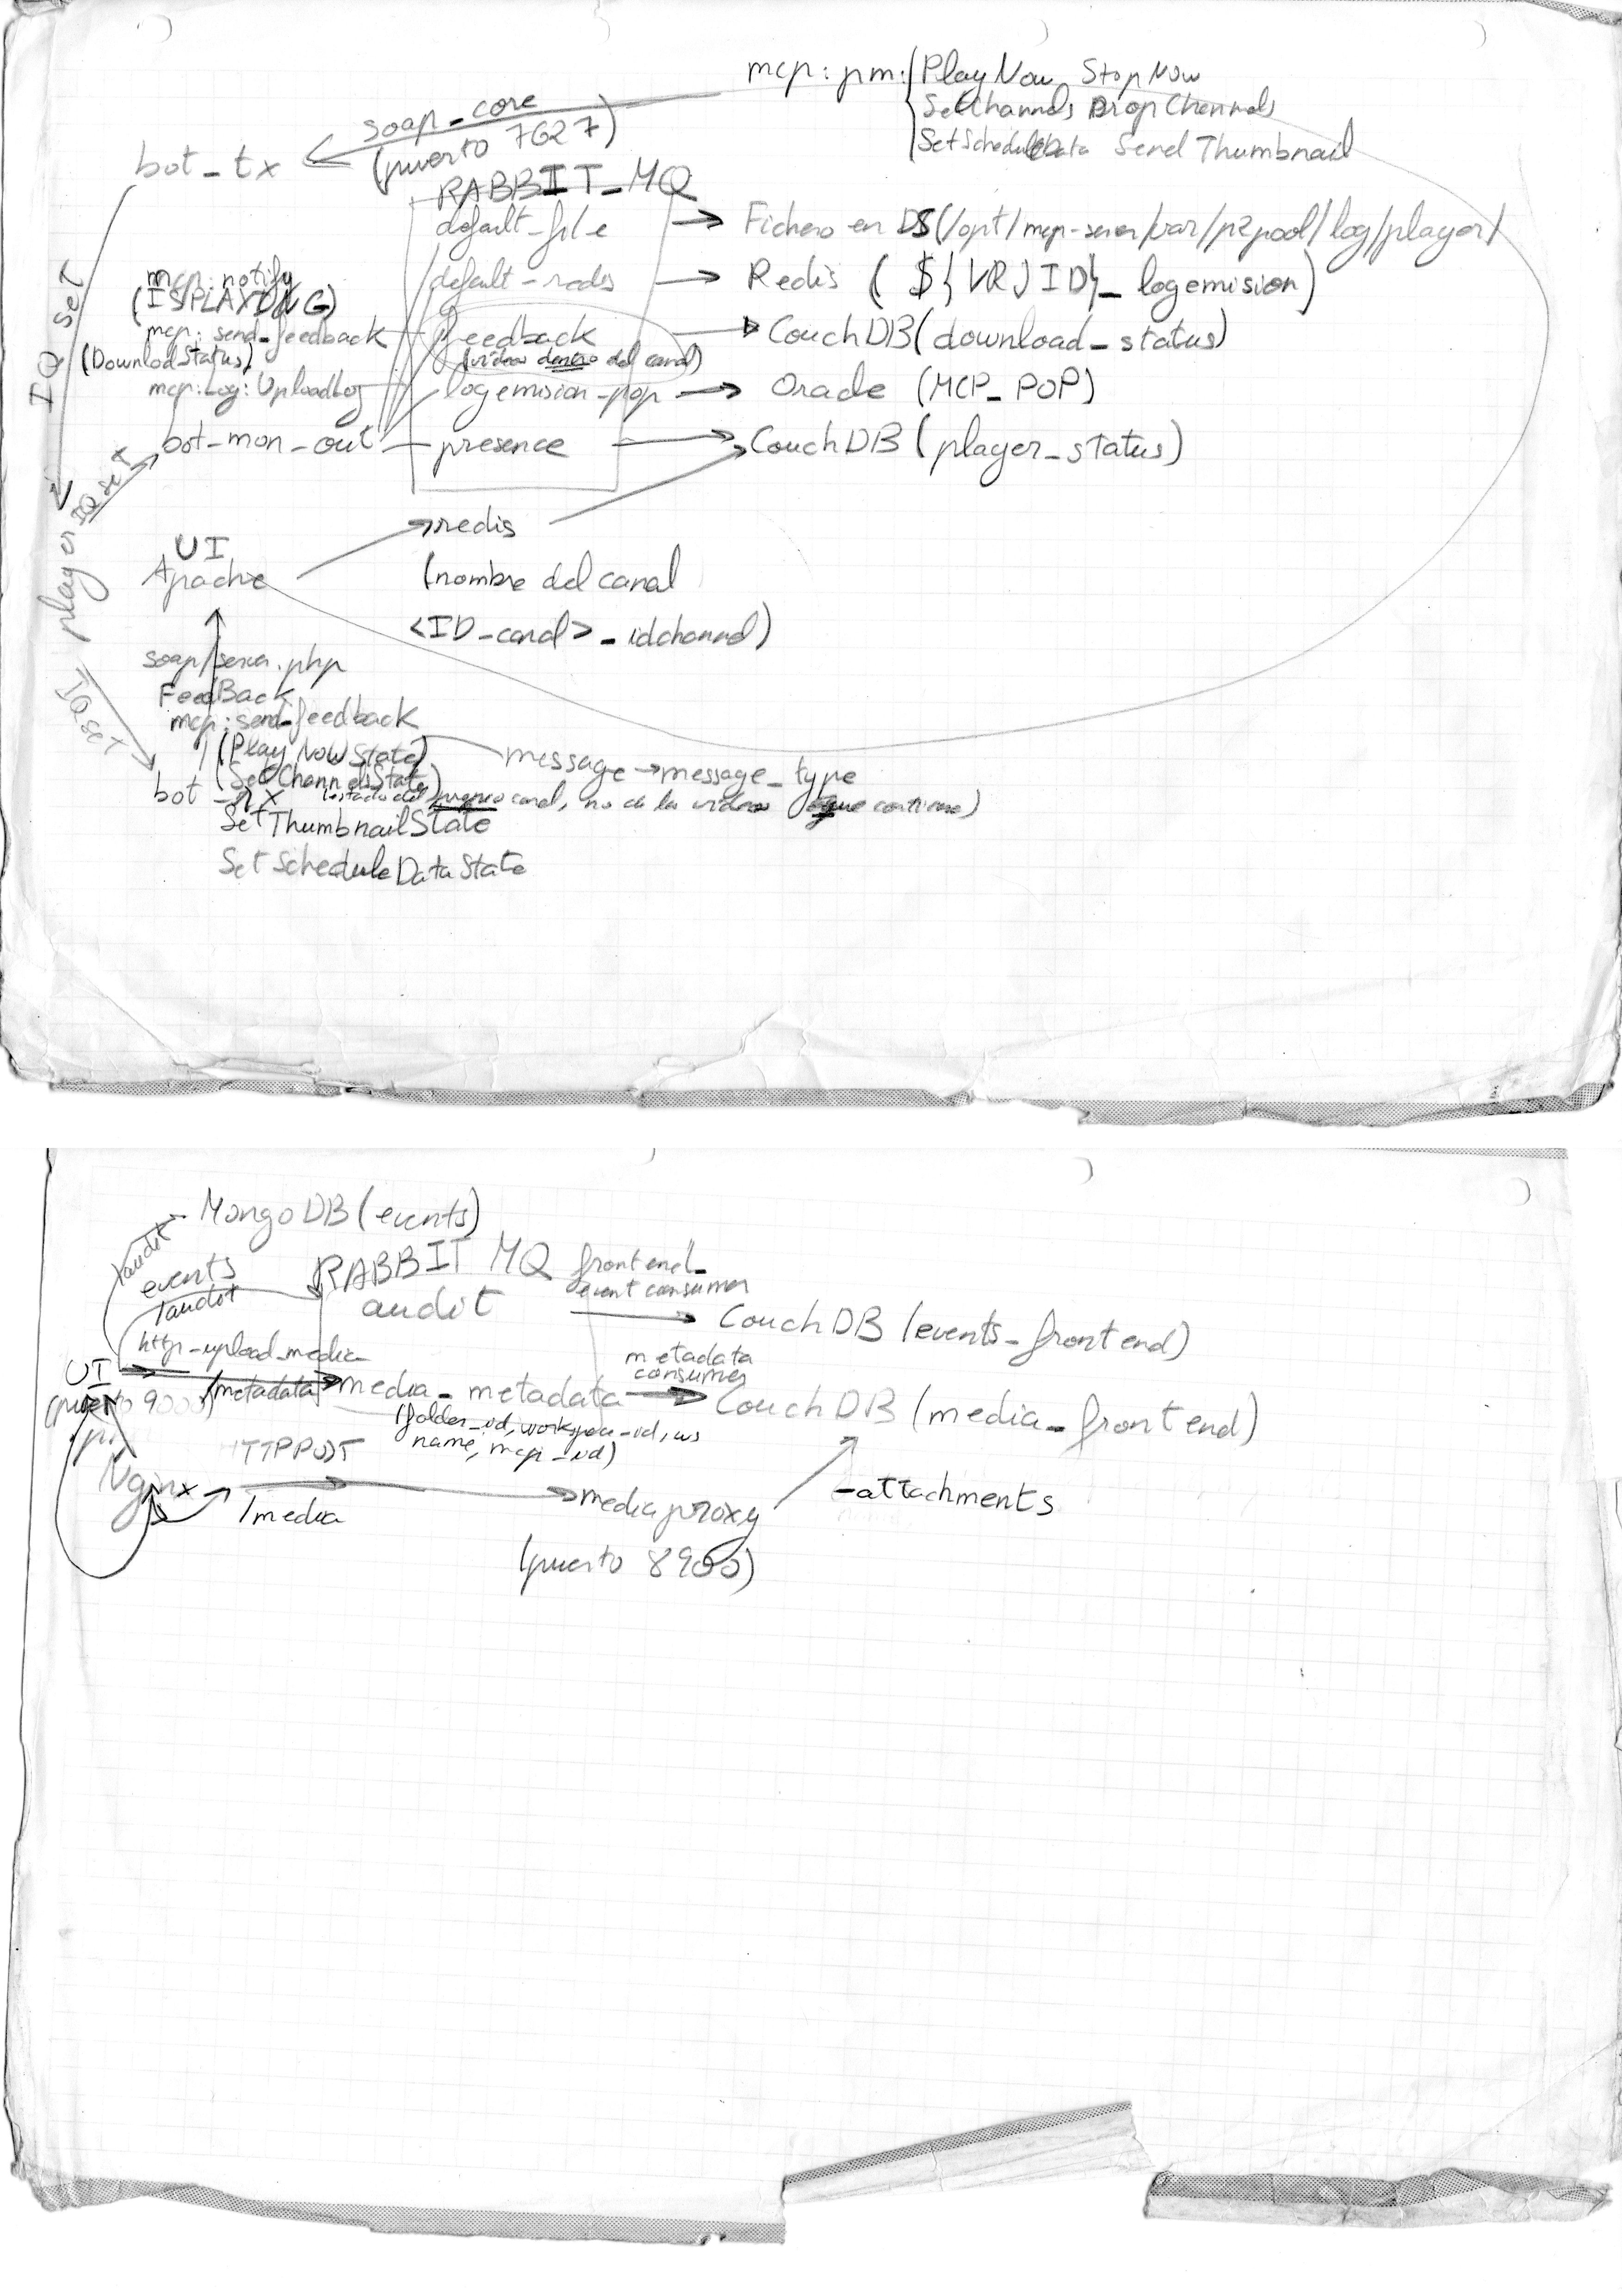 mcp: pm: PlayNow StopNow
SetChannels DropChannels
SetScheduleData Send Thumbnail
soap_core
(puerto 7627)
bot_tx
RABBIT_MQ
default_file → Fichero en DS(/opt/mcp-server/var/p2pool/log/player/
default_redis → Redis ( ${VR)ID}_logemision)
IQ set
mcp: notify
(ISPLAYING)
mcp: send_feedback
feedback → CouchDB(download_status)
(DownloadStatus)
(videos dentro del canal)
mcp:Log:UploadLog
logemision_pop → Oracle (MCP_POP)
bot_mon_out
presence → CouchDB (player_status)
IQ set
player
redis
UI
Apache
(nombre del canal
<ID_canal>_idchannel)
IQ set
soap/server.php
FeedBack
mcp:send_feedback
(Play Now State)
message → message_type
(SetChannelsState)
bot_rx
(estado del propio canal, no de los videos que contiene)
SetThumbnailState
Set ScheduleDataState
MongoDB (events)
/audit
events
/audit
RABBIT MQ
audit
frontend_
event consumer
CouchDB (events_frontend)
http_upload_media
UI
(puerto 9000)
/metadata
media_metadata
metadata
consumer
CouchDB (media_frontend)
(folder_id, workspace_id, ws
name, mcp_id)
HTTP POST
Nginx
/media
mediaproxy
(puerto 8900)
-attachments